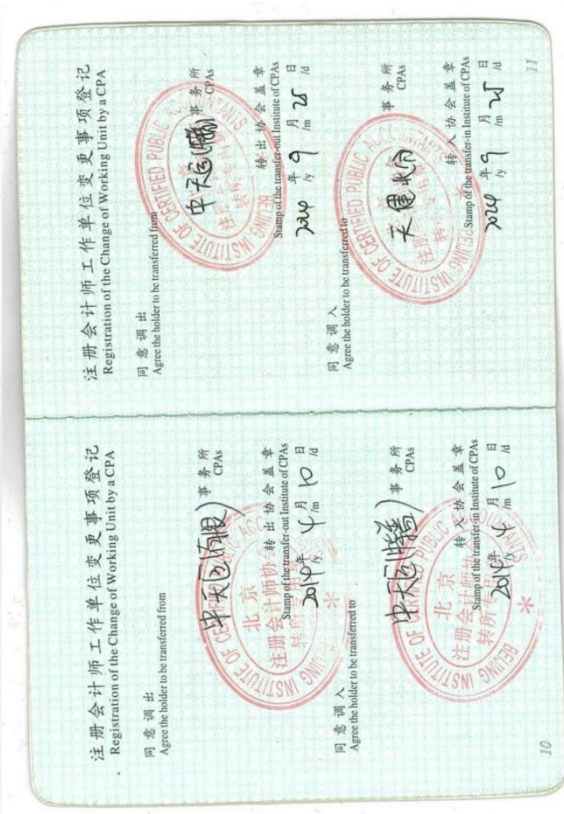 注册会计师工作单位变更事项登记
Registration of the Change of Working Unit by a CPA
同意调出
Agree the holder to be transferred from
事务所
CPAs
转出协会盖章
Stamp of the transfer-out Institute of CPAs
2014年4月10日
/y /m /d
同意调入
Agree the holder to be transferred to
事务所
CPAs
转入协会盖章
Stamp of the transfer-in Institute of CPAs
2014年4月10日
/y /m /d
BEIJING INSTITUTE OF CERTIFIED PUBLIC ACCOUNTANTS
北京
注册会计师协会
10
注册会计师工作单位变更事项登记
Registration of the Change of Working Unit by a CPA
同意调出
Agree the holder to be transferred from
中天运 事务所
CPAs
转出协会盖章
Stamp of the transfer-out Institute of CPAs
2024年9月25日
/y /m /d
同意调入
Agree the holder to be transferred to
天健 事务所
CPAs
转入协会盖章
Stamp of the transfer-in Institute of CPAs
2024年9月25日
/y /m /d
BEIJING INSTITUTE OF CERTIFIED PUBLIC ACCOUNTANTS
11